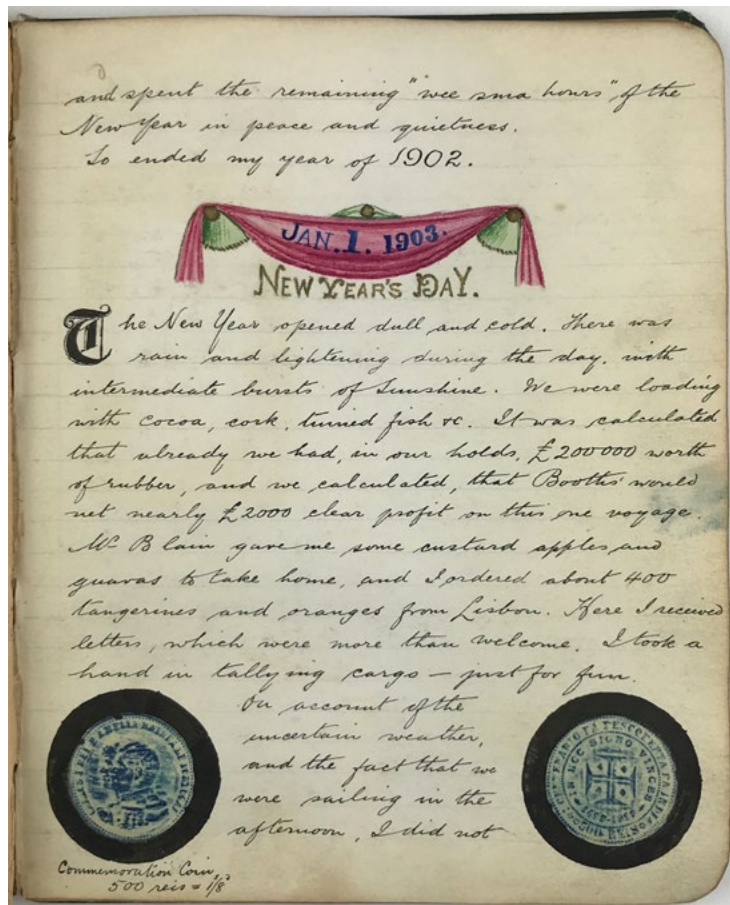 and spent the remaining "wee sma hours" of the
New Year in peace and quietness.
So ended my year of 1902.
JAN. 1. 1903.
NEW YEAR'S DAY.
The New Year opened dull and cold. There was
rain and lightening during the day, with
intermediate bursts of Sunshine. We were loading
with cocoa, cork, tinned fish &c. It was calculated
that already we had, in our holds, £200000 worth
of rubber, and we calculated, that Booths' would
net nearly £2000 clear profit on this one voyage.
Mr Blain gave me some custard apples and
guavas to take home, and I ordered about 400
tangerines and oranges from Lisbon. Here I received
letters, which were more than welcome. I took a
hand in tallying cargo – just for fun.
On account of the
uncertain weather,
and the fact that we
were sailing in the
afternoon, I did not
IN HOC SIGNO VINCES
Commemoration Coin,
500 reis = 1/8